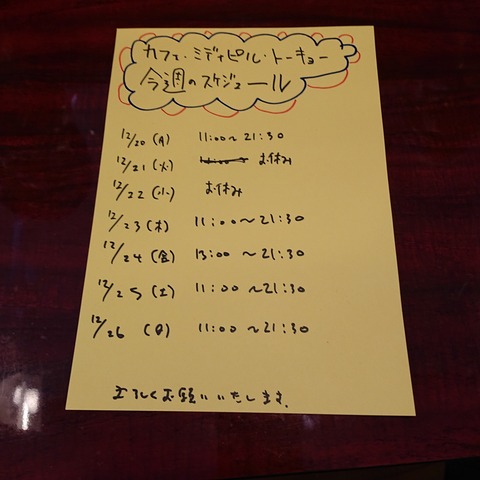 カフェ・ミディピル・トーキョー
今週のスケジュール
12/20 (月) 11:00~21:30
12/21 (火) お休み
12/22 (水) お休み
12/23 (木) 11:00~21:30
12/24 (金) 13:00~21:30
12/25 (土) 11:00~21:30
12/26 (日) 11:00~21:30
よろしくお願いいたします。